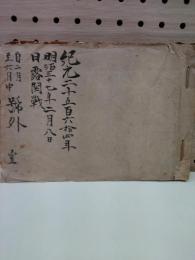 紀元二千五百六拾四年
明治三十七年二月八日
日露開戦
自二月
至六月中
號外